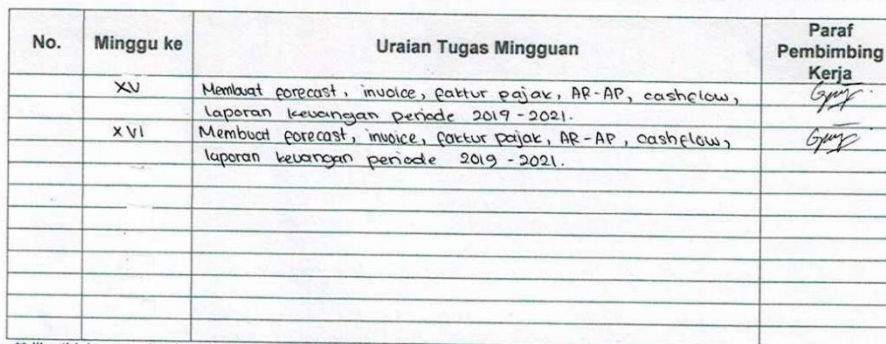 No. Minggu ke Uraian Tugas Mingguan Paraf Pembimbing Kerja
XV Membuat forecast, invoice, faktur pajak, AR-AP, cashflow,
laporan keuangan periode 2019-2021.
XVI Membuat forecast, invoice, faktur pajak, AR-AP, cashflow,
laporan keuangan periode 2019-2021.